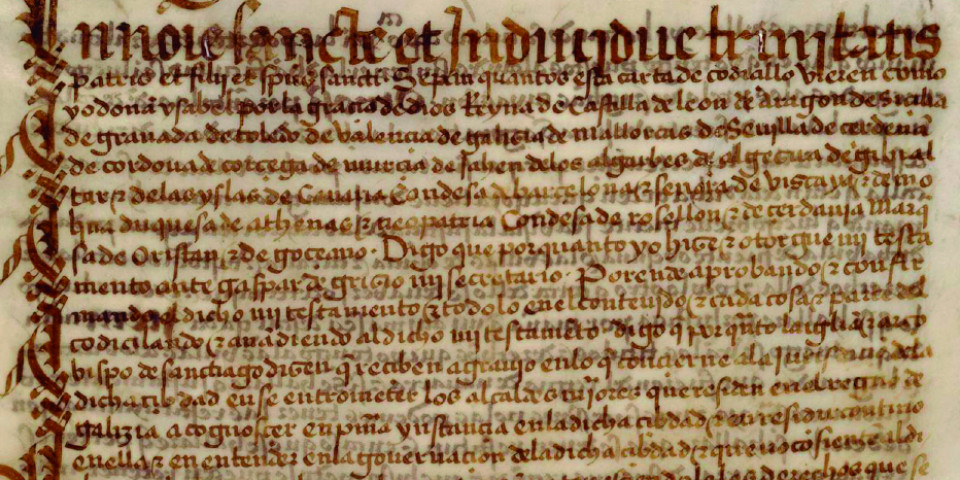 In noīe sancte et Indiuidue trinitatis
patris et filij et spūs sancti Sepan quantos esta carta de cobdiçillo vieren como
yo doña ysabel por la graçia de dios Reyna de Castilla de leon de aragon de Siçilia
de granada de toledo de valencia de galizia de mallorcas de Seuilla de cerdeña
de cordoua de corcega de murcia de Jahen delos algarbes de algezira de gibral
tar & delas yslas de Canaria Condesa de barcelona & señora de vizcaya & de mo
lina duquesa de athenas & de neopatria Condesa de rosellon & de cerdania marq̄
sa de Oristan & de goçeano. Digo que por quanto yo hize & otorgue mi testa
mento ante gaspar de grizio mi secretario. Por ende aprobando & confir
mando el dicho mi testamento & todo lo enel contenido & cada cosa & parte del
codicilando & añadiendo al dicho mi testamēto digo q̄ por quāto la iglia & arço
bispo de sanctiago dizen q̄ reciben agrauio en lo q̄ concierne ala judicatura dela
dicha cibdad en se entrometer los alcaldes mayores que residen en el regno de
galizia a cognoscer en pm̄a ynstancia en la dicha cibdad & en residir contino
en ella & en entender en la gouernacion dela dicha cibdad & que no cōsienten al di
los derechos que se